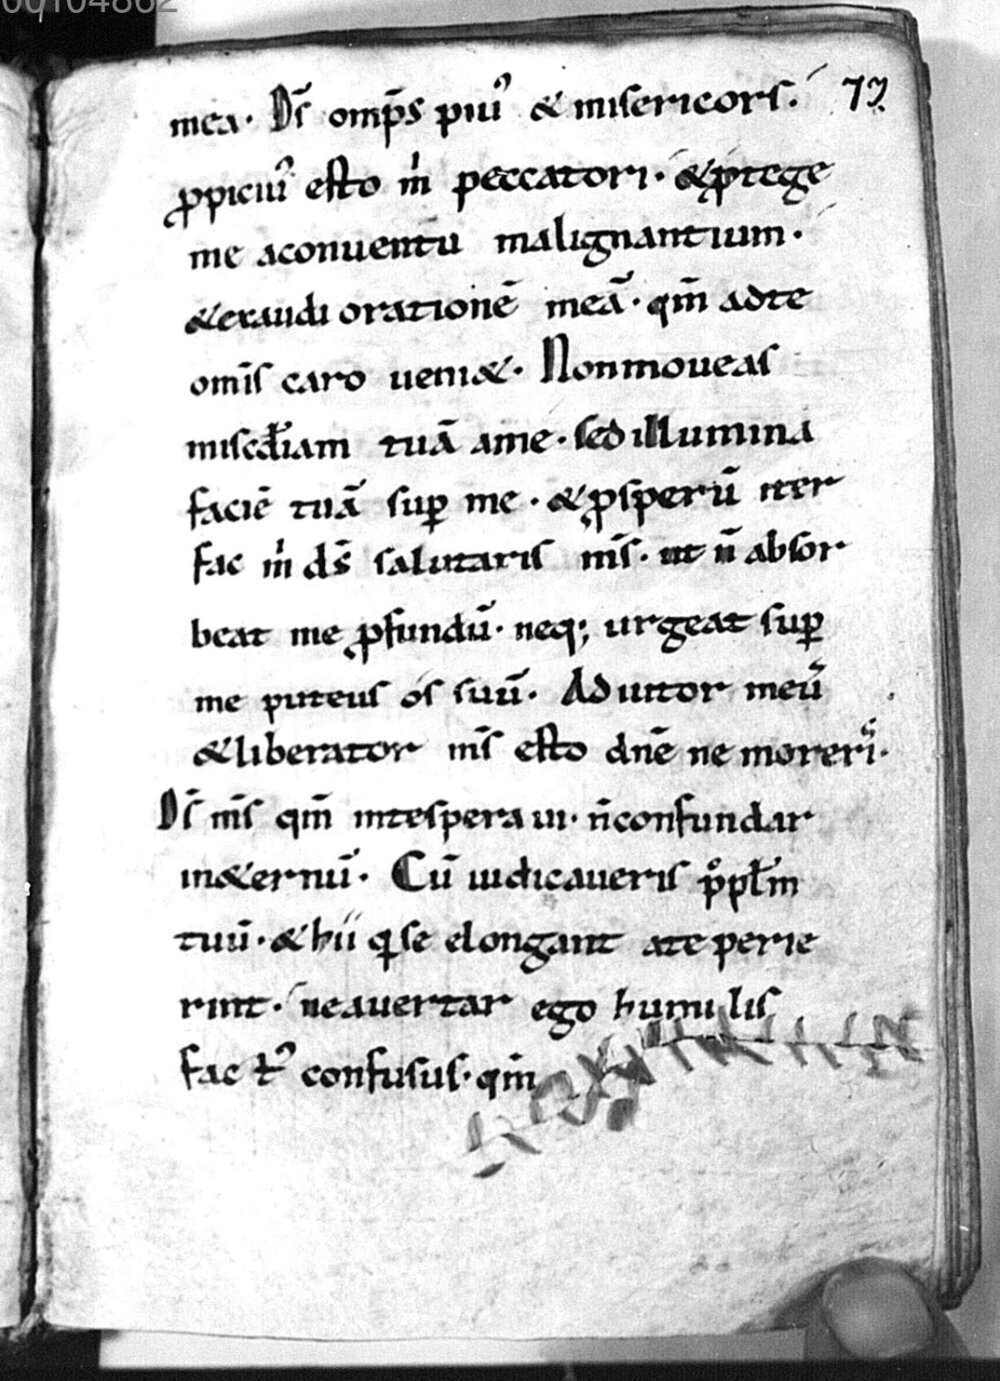 00104862
mea. Ds̄ omp̄s piuꝰ & misericors. 73
ꝓpiciuꝰ esto m̍ peccatori. &ꝓtege
me aconuentū malignantium.
&exaudi orationē meā. qm̄ adte
omīs caro ueni&. Nonmoueas
misc̄diam tuā ame. sed illumina
faciē tuā suꝑ me. &ꝓsperū iter
fac m̍ ds̄ salutaris m̄s. ut n̄ absor
beat me ꝓfundū. neq; urgeat suꝑ
me puteus os suū. Adiutor meū
&liberator m̄s esto dn̄e ne morerꝭ.
Ds̄ m̄s qm̄ intesperaui. n̄confundar
in&ernū. Cū iudicaueris ppl̄m
tuū. & hii q̄ se elongant ate perie
rint. ne auertar ego humilis
fac tꝰ confusus. qm̄